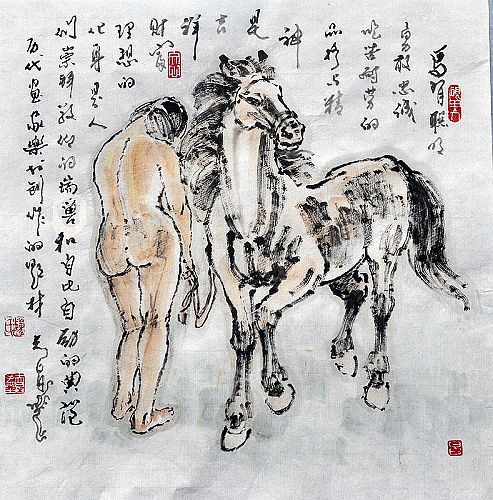 马有聪明
勇敢忠诚
吃苦耐劳的
品格与精
神
是
吉
祥
财富
理想的
化身是人
们崇拜敬仰的瑞兽和自比自励的典范
历代画家乐于创作的题材